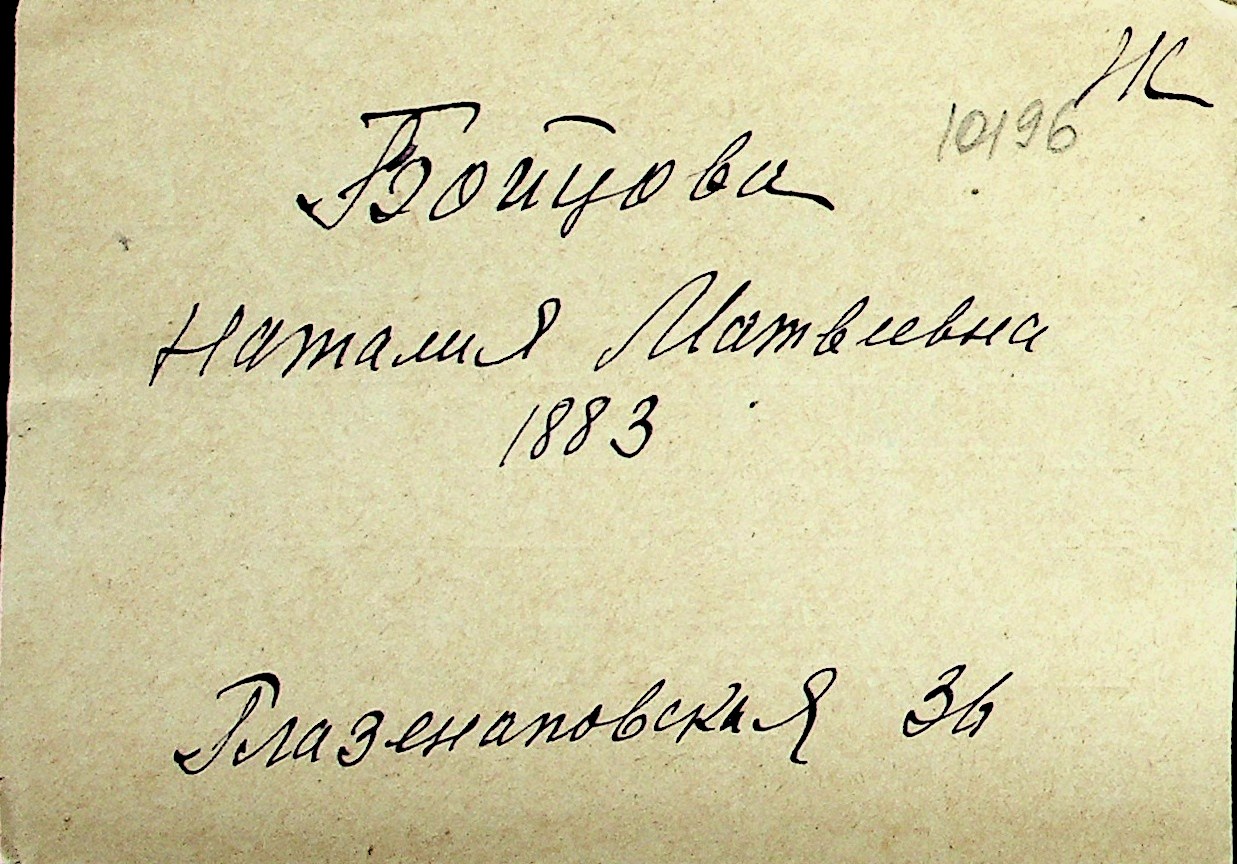 Ж
10196
Бойцова
Наталия Матвеевна
1883
Глазенаповская 36